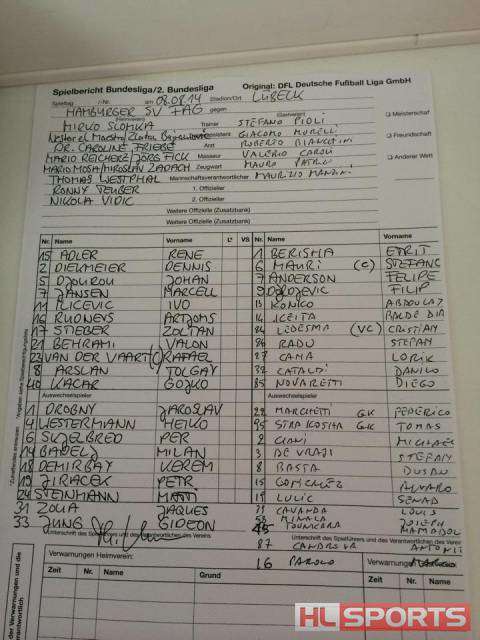 Spielbericht Bundesliga/2. Bundesliga Original: DFL Deutsche Fußball Liga GmbH
Spieltag /-Nr. am 08.08.14 Stadion/Ort LÜBECK
HAMBURGER SV gegen
Heimverein Gastverein
MIRKO SLOMKA Trainer STEFANO PIOLI Meisterschaft
Assistent GIACOMO MURELLI
DR. CAROLINE FRIEBE Arzt ROBERTO BIANCHINI Freundschaft
MARIO REICHERZ/JÖRG FICK Masseur VALERIO CAROLI
MARIO MOSA/MIROSLAV ZADACH Zeugwart MAURO PATRIZI Anderer Wett
THOMAS WESTPHAL Mannschaftsverantwortlicher MAURIZIO MANZINI
RONNY TEUBER 1. Offizieller
NIKOLA VIDIC 2. Offizieller
Weitere Offizielle (Zusatzbank)
Weitere Offizielle (Zusatzbank)
Nr. Name Vorname L* VS Nr. Name Vorname
15 ADLER RENE 1 BERISHA ETRIT
2 DIEKMEIER DENNIS 6 MAURI (C) STEFANO
5 DJOUROU JOHAN 7 ANDERSON FELIPE
7 JANSEN MARCELL 9 DJORDJEVIC FILIP
11 ILICEVIC IVO 13 KONKO ABDOULAY
16 RUDNEVS ARTJOMS 14 KEITA BALDE DIA
17 STIEBER ZOLTAN 24 LEDESMA (VC) CRISTIAN
21 BEHRAMI VALON 26 RADU STEFAN
23 VAN DER VAART (C) RAFAEL 27 CANA LORIK
8 ARSLAN TOLGAY 32 CATALDI DANILO
40 KACAR GOJKO 85 NOVARETTI DIEGO
Auswechselspieler Auswechselspieler
1 DROBNY JAROSLAV 22 MARCHETTI GK FEDERICO
4 WESTERMANN HEIKO 95 STRAKOSHA GK TOMAS
6 SKJELBRED PER 2 CIANI MICHAEL
14 BADELJ MILAN 3 DE VRAJ STEFAN
18 DEMIRBAY KEREM 8 BASTA DUSAN
19 JIRACEK PETR 15 GONZALEZ ALVARO
24 STEINMANN MATTI 19 LULIC SENAD
31 ZOUA JAQUES CAVANDA LOUIS
33 JUNG GIDEON MINALA JOSEPH
TOUNKARA MAMADOU
Unterschrift des Spielführers und des Verantwortlichen des Vereins Unterschrift des Spielführers und des Verantwortlichen des Verei
87 CANDREVA ANTONIO
Verwarnungen Heimverein: 16 PAROLO Verwarnungen
Zeit Nr. Name Grund Zeit Nr. Name
HL SPORTS